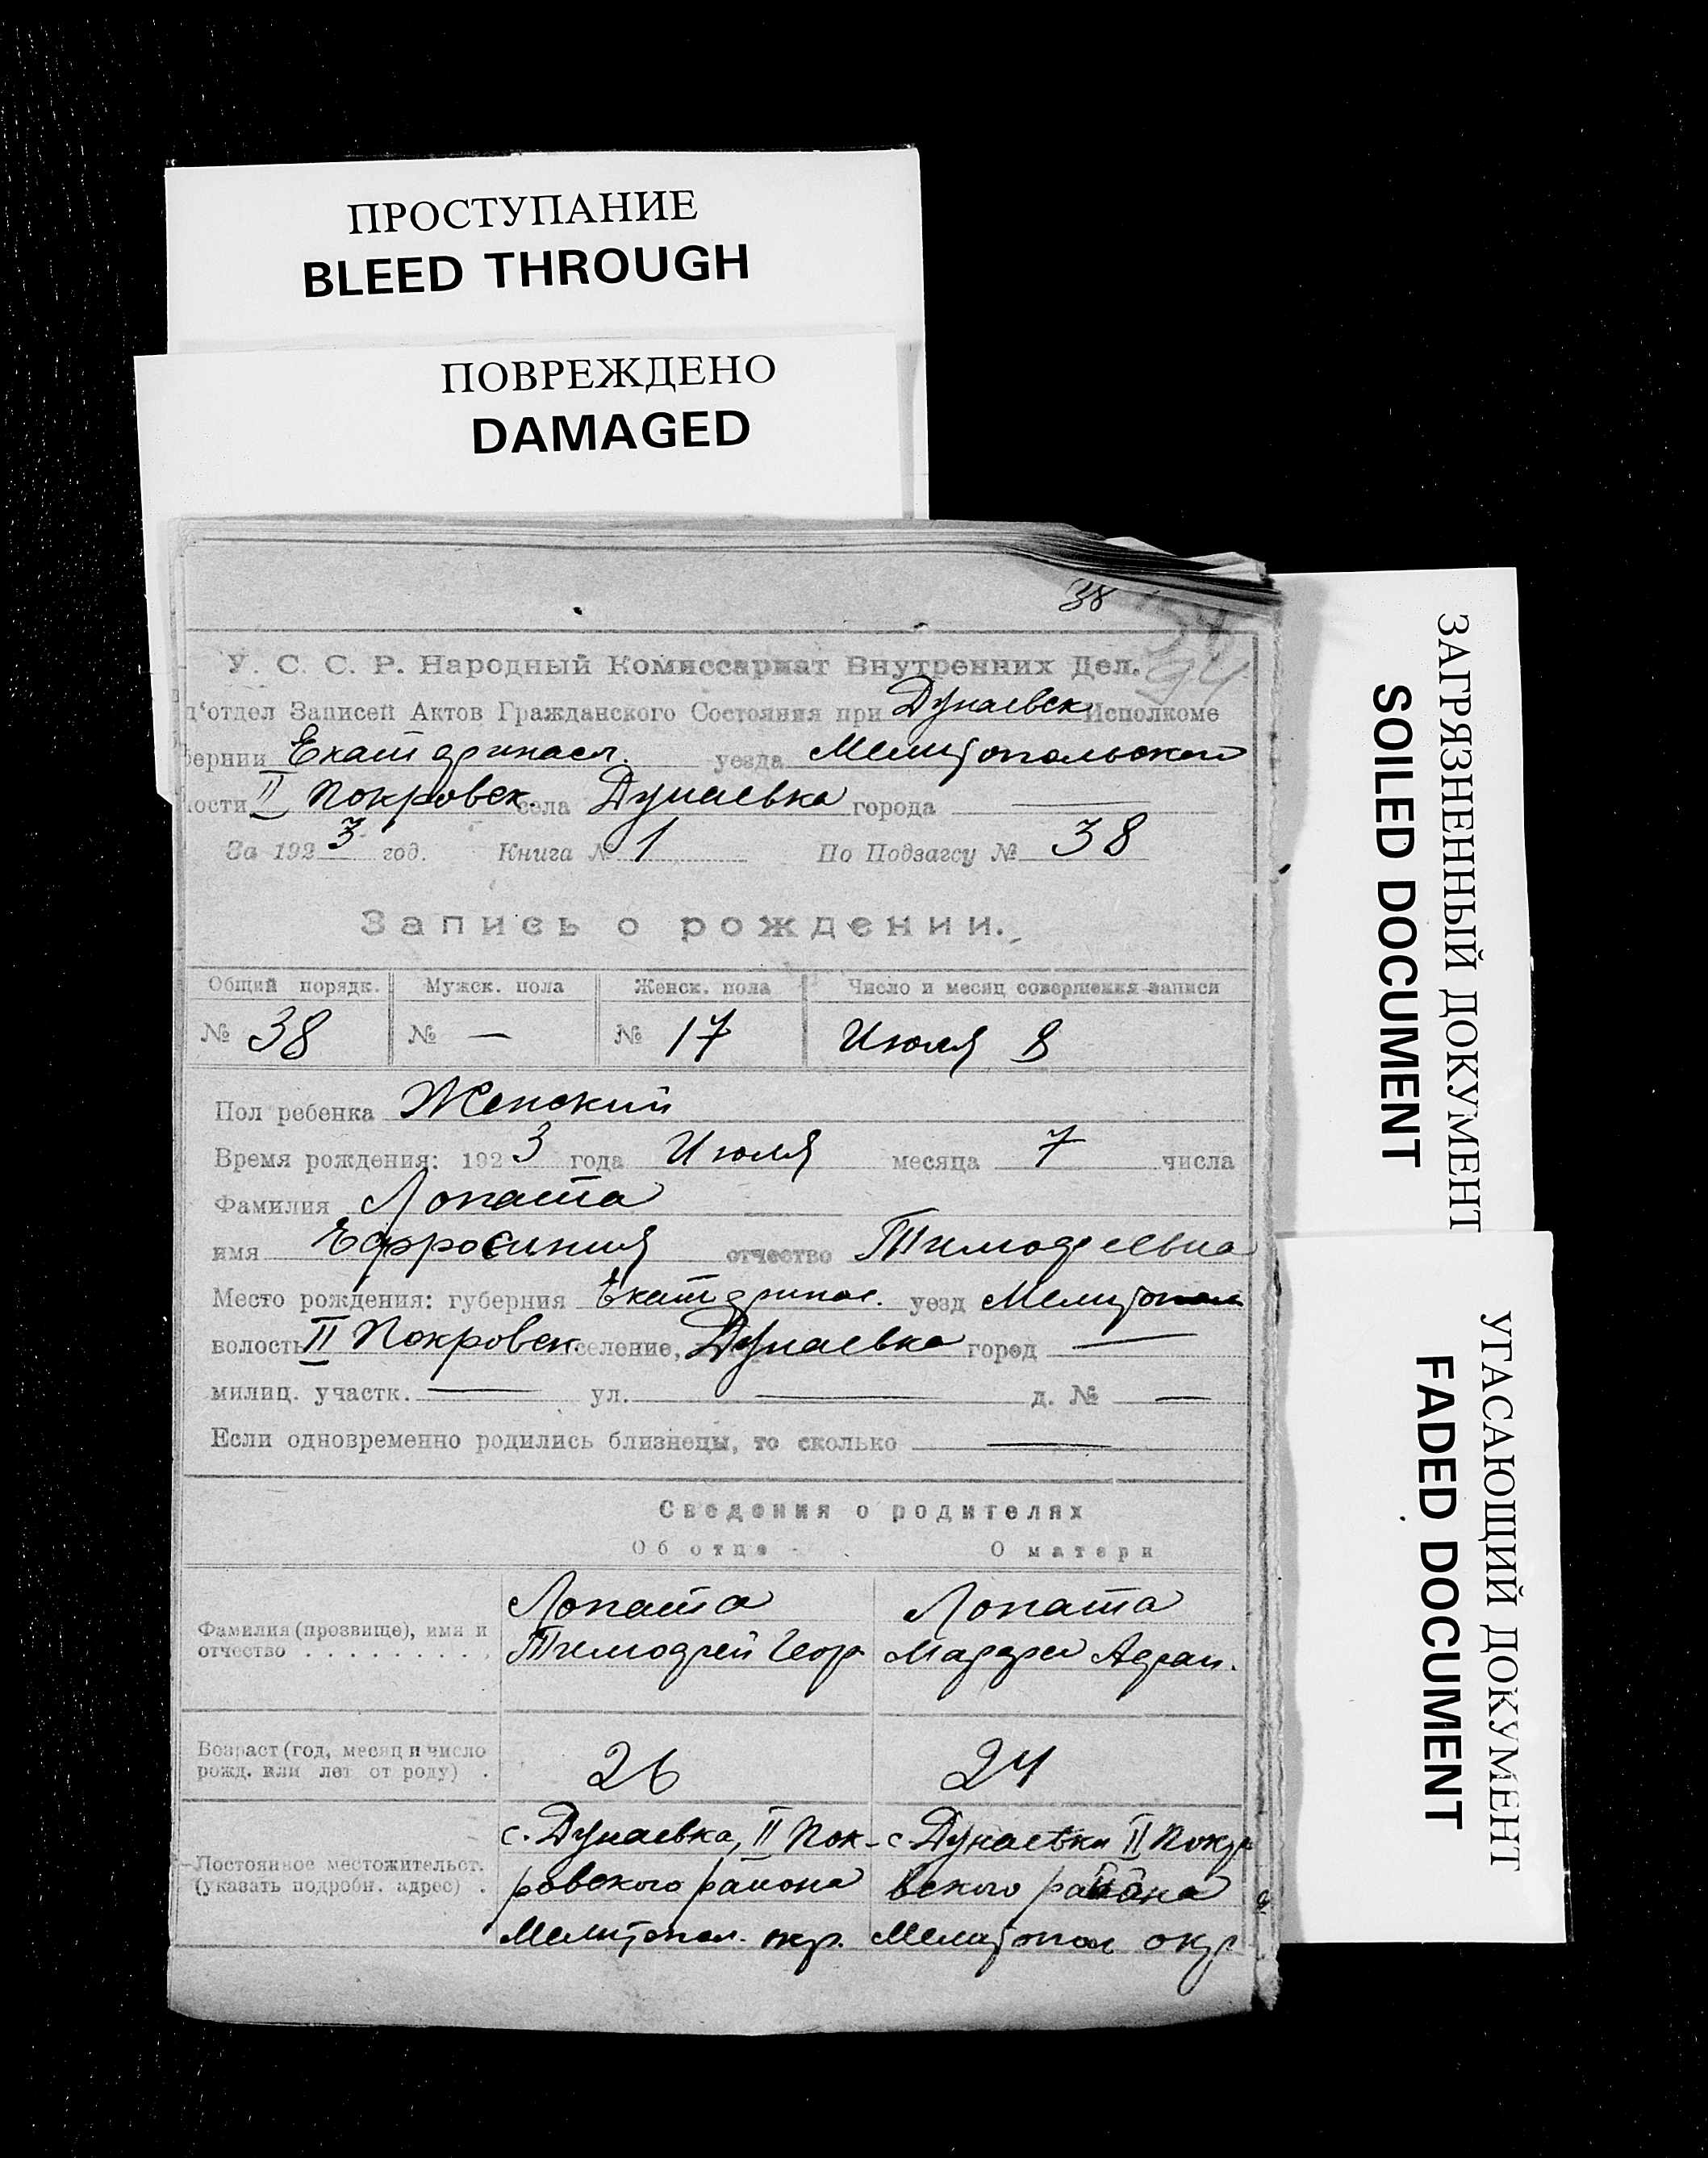 ПРОСТУПАНИЕ
BLEED THROUGH
ПОВРЕЖДЕНО
DAMAGED
38
94
У. С. С. Р. Народный Комиссариат Внутренних Дел.
д'отдел Записей Актов Гражданского Состояния при Дунаевск Исполкоме
бернии Екатеринасл. уезда Мелитопольской
ости II Покровск. села Дунаевка города —
За 1923 год. Книга № 1 По Подзагсу № 38
Запись о рождении.
Общий порядк. Мужск. пола Женск. пола Число и месяц совершения записи
№ 38 № — № 17 Июля 8
Пол ребенка Женский
Время рождения: 1923 года Июля месяца 7 числа
Фамилия Лопата
имя Ефросиния отчество Тимофеевна
Место рождения: губерния Екатеринос. уезд Мелитопол
волость II Покровск. селение, Дунаевка город —
милиц. участк. — ул. — д. № —
Если одновременно родились близнецы, то сколько —
Сведения о родителях
Об отце О матери
Лопата Лопата
Фамилия (прозвище), имя и
отчество . . . . . . . . . Тимофей Геор. Марфа
Возраст (год, месяц и число
рожд. или лет от роду) . 26 24
с. Дунаевка, II Пок- с. Дунаевка II Покр
Постоянное местожительст.
(указать подробн. адрес) . ровского района вского района
Мелитопол. окр. Мелитопол окр
ЗАГРЯЗНЕННЫЙ ДОКУМЕНТ
SOILED DOCUMENT
УГАСАЮЩИЙ ДОКУМЕНТ
FADED DOCUMENT